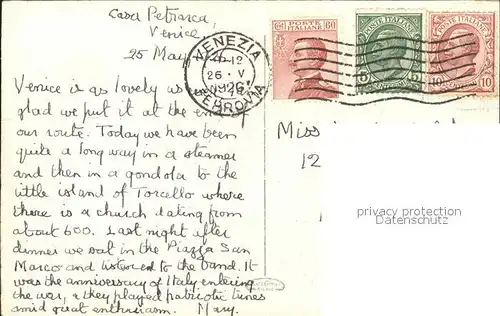 Casa Petrarca,
Venice.
25 May
Venice is as lovely as
glad we put it at the end
our route. Today we have been
quite a long way in a steamer
and then in a gondola to the
little island of Torcello where
there is a church dating from
about 600. Last night after
dinner we sat in the Piazza San
Marco and listened to the band. It
was the anniversary of Italy entering
the war, & they played patriotic tunes
amid great enthusiasm. Mary.
VENEZIA
26 · V
1926
FERROVIA
60 POSTE ITALIANE 60
POSTE ITALIANE
5 5
POSTE ITALIANE
10 10
Miss
12
privacy protection
Datenschutz